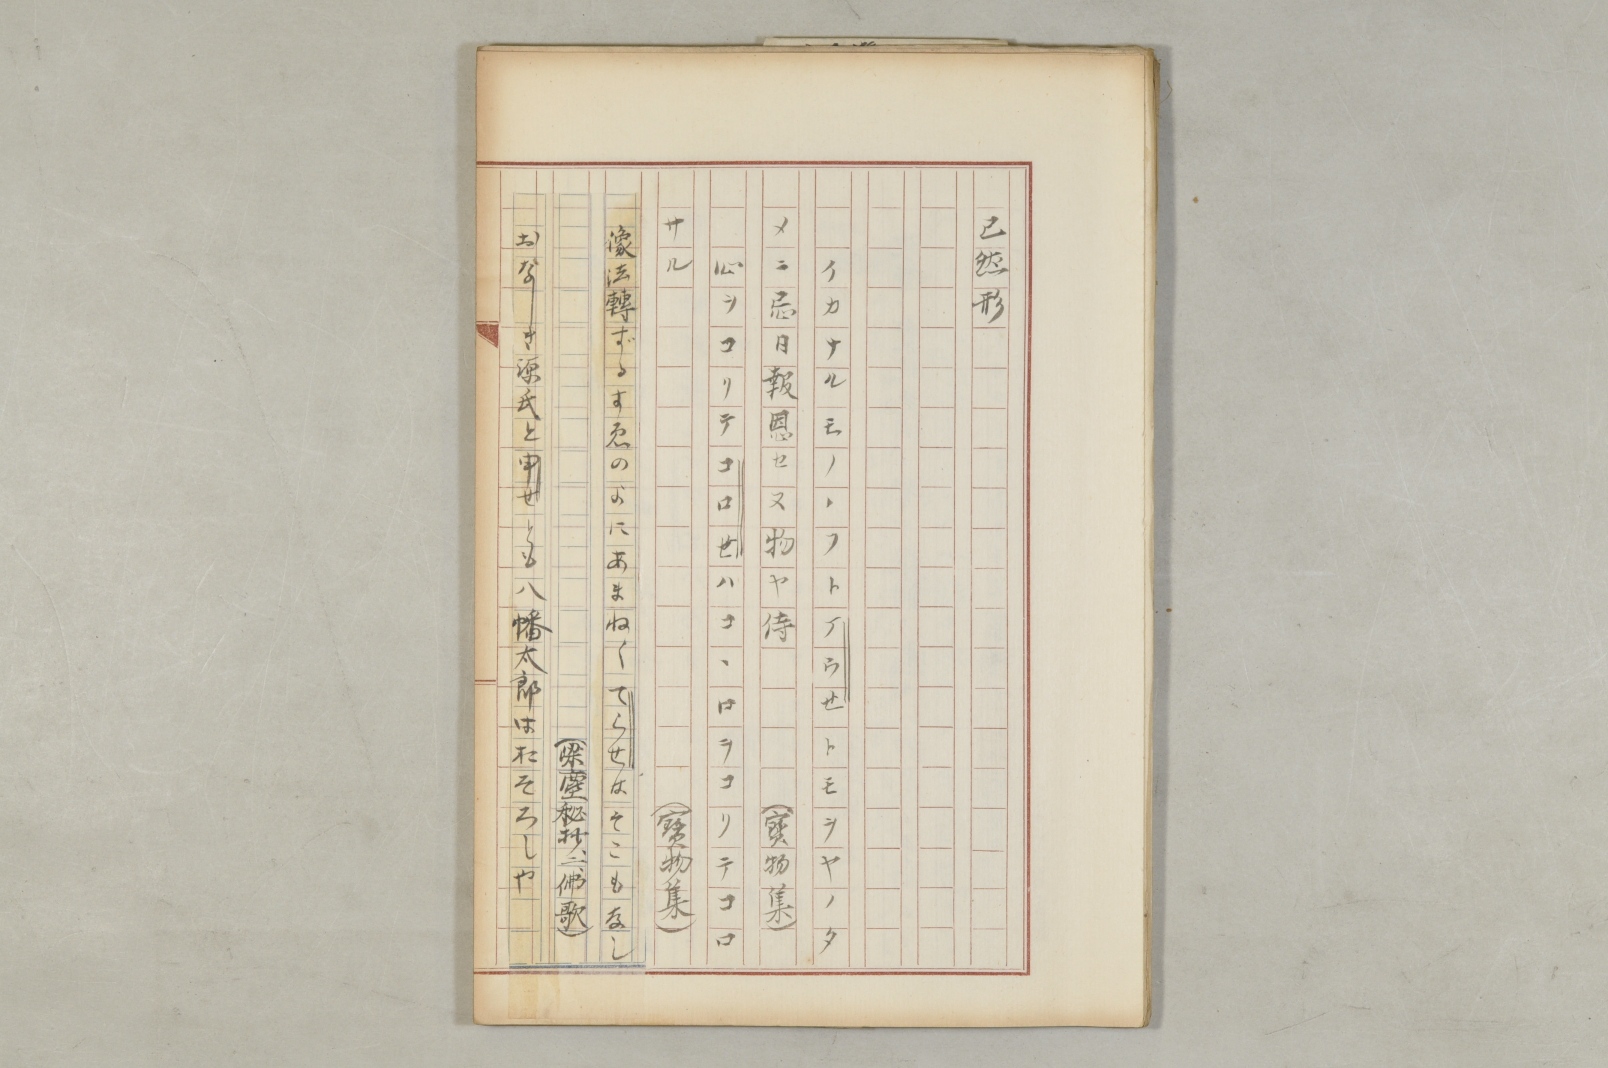 已然形
イカナルモノヽフトイラせトモヲヤノタ
メニ忌日報恩セヌ物ヤ侍　(寳物集)
心ヲコリテコロせハコヽロヲコリテコロ
サル　(寳物集)
像法轉ずるすゑのよにあまねくてらせはそこもなし
(梁塵秘抄二、佛歌)
おなしき源氏と申せとも八幡太郎はおそろしや